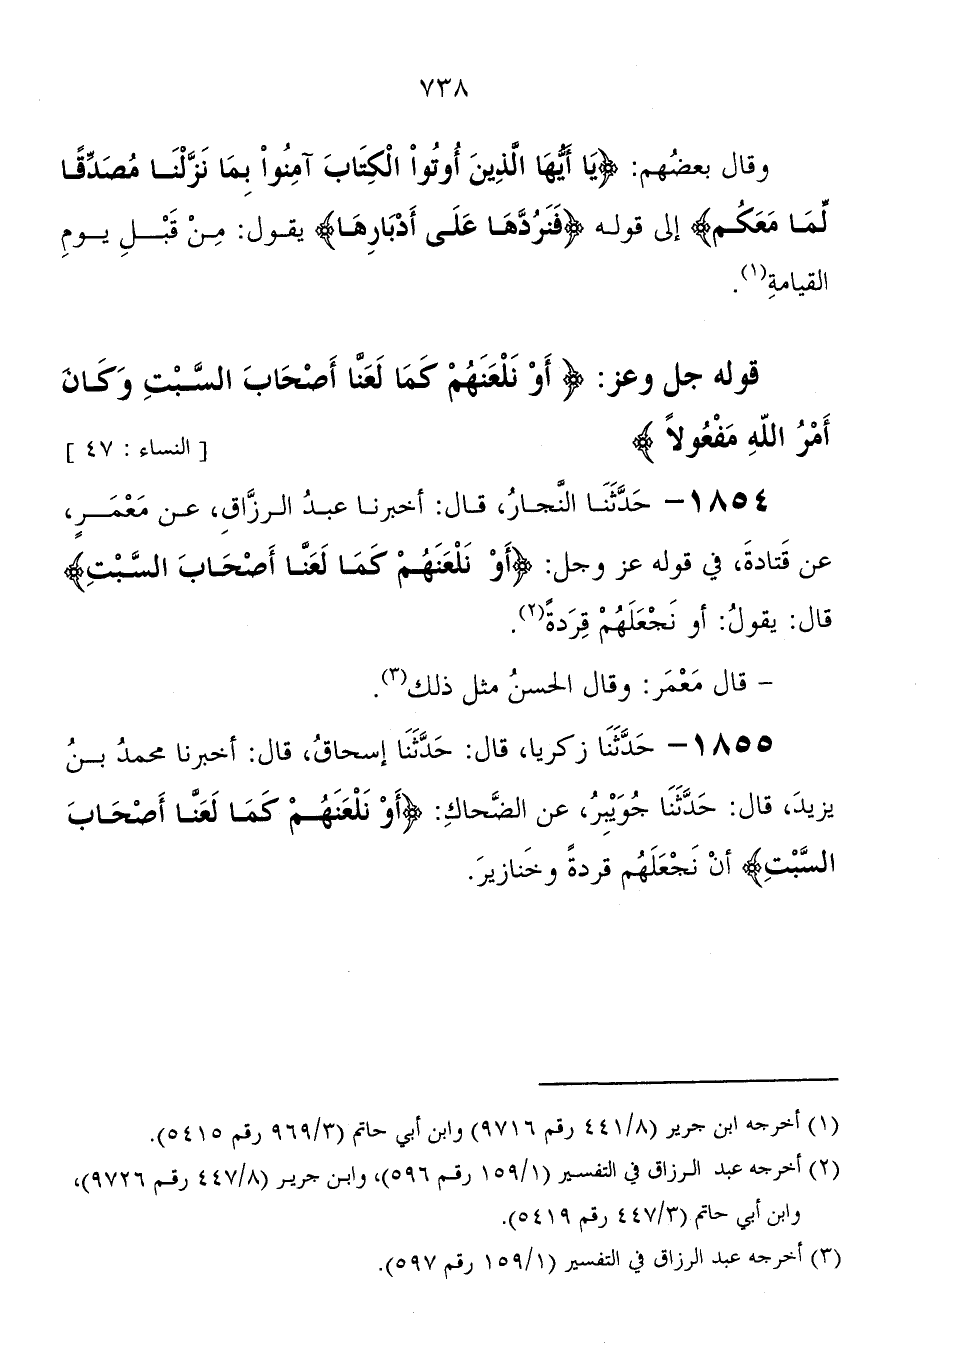 ٧٣٨
وقال بعضُهم: ﴿يَا أَيُّهَا الَّذِينَ أُوتُواْ الْكِتَابَ آمِنُواْ بِمَا نَزَّلْنَا مُصَدِّقًا
لِّمَا مَعَكُم﴾ إلى قوله ﴿فَنَرُدَّهَا عَلَى أَدْبَارِهَا﴾ يقول: مِنْ قَبْلِ يومِ
القيامةِ(١).
قوله جل وعز: ﴿ أَوْ نَلْعَنَهُمْ كَمَا لَعَنَّا أَصْحَابَ السَّبْتِ وَكَانَ
أَمْرُ اللّهِ مَفْعُولاً ﴾ [ النساء : ٤٧ ]
١٨٥٤- حَدَّثَنَا النَّجارُ، قال: أخبرنا عبدُ الرزَّاقِ، عن مَعْمَرٍ،
عن قَتادةَ، في قوله عز وجل: ﴿أَوْ نَلْعَنَهُمْ كَمَا لَعَنَّا أَصْحَابَ السَّبْتِ﴾
قال: يقولُ: أو نَجْعَلَهُمْ قِرَدةً(٢).
- قال مَعْمَر: وقال الحسنُ مثل ذلك(٣).
١٨٥٥- حَدَّثَنَا زكريا، قال: حَدَّثَنَا إسحاقُ، قال: أخبرنا محمدُ بنُ
يزيدَ، قال: حَدَّثَنَا جُوَيْبِرُ، عن الضَّحاكِ: ﴿أَوْ نَلْعَنَهُمْ كَمَا لَعَنَّا أَصْحَابَ
السَّبْتِ﴾ أنْ نَجْعَلَهُم قردةً وخَنازيرَ.
(١) أخرجه ابن جرير (٤٤١/٨ رقم ٩٧١٦) وابن أبي حاتم (٩٦٩/٣ رقم ٥٤١٥).
(٢) أخرجه عبد الرزاق في التفسير (١٥٩/١ رقم ٥٩٦)، وابن جرير (٤٤٧/٨ رقم ٩٧٢٦)،
وابن أبي حاتم (٤٤٧/٣ رقم ٥٤١٩).
(٣) أخرجه عبد الرزاق في التفسير (١٥٩/١ رقم ٥٩٧).